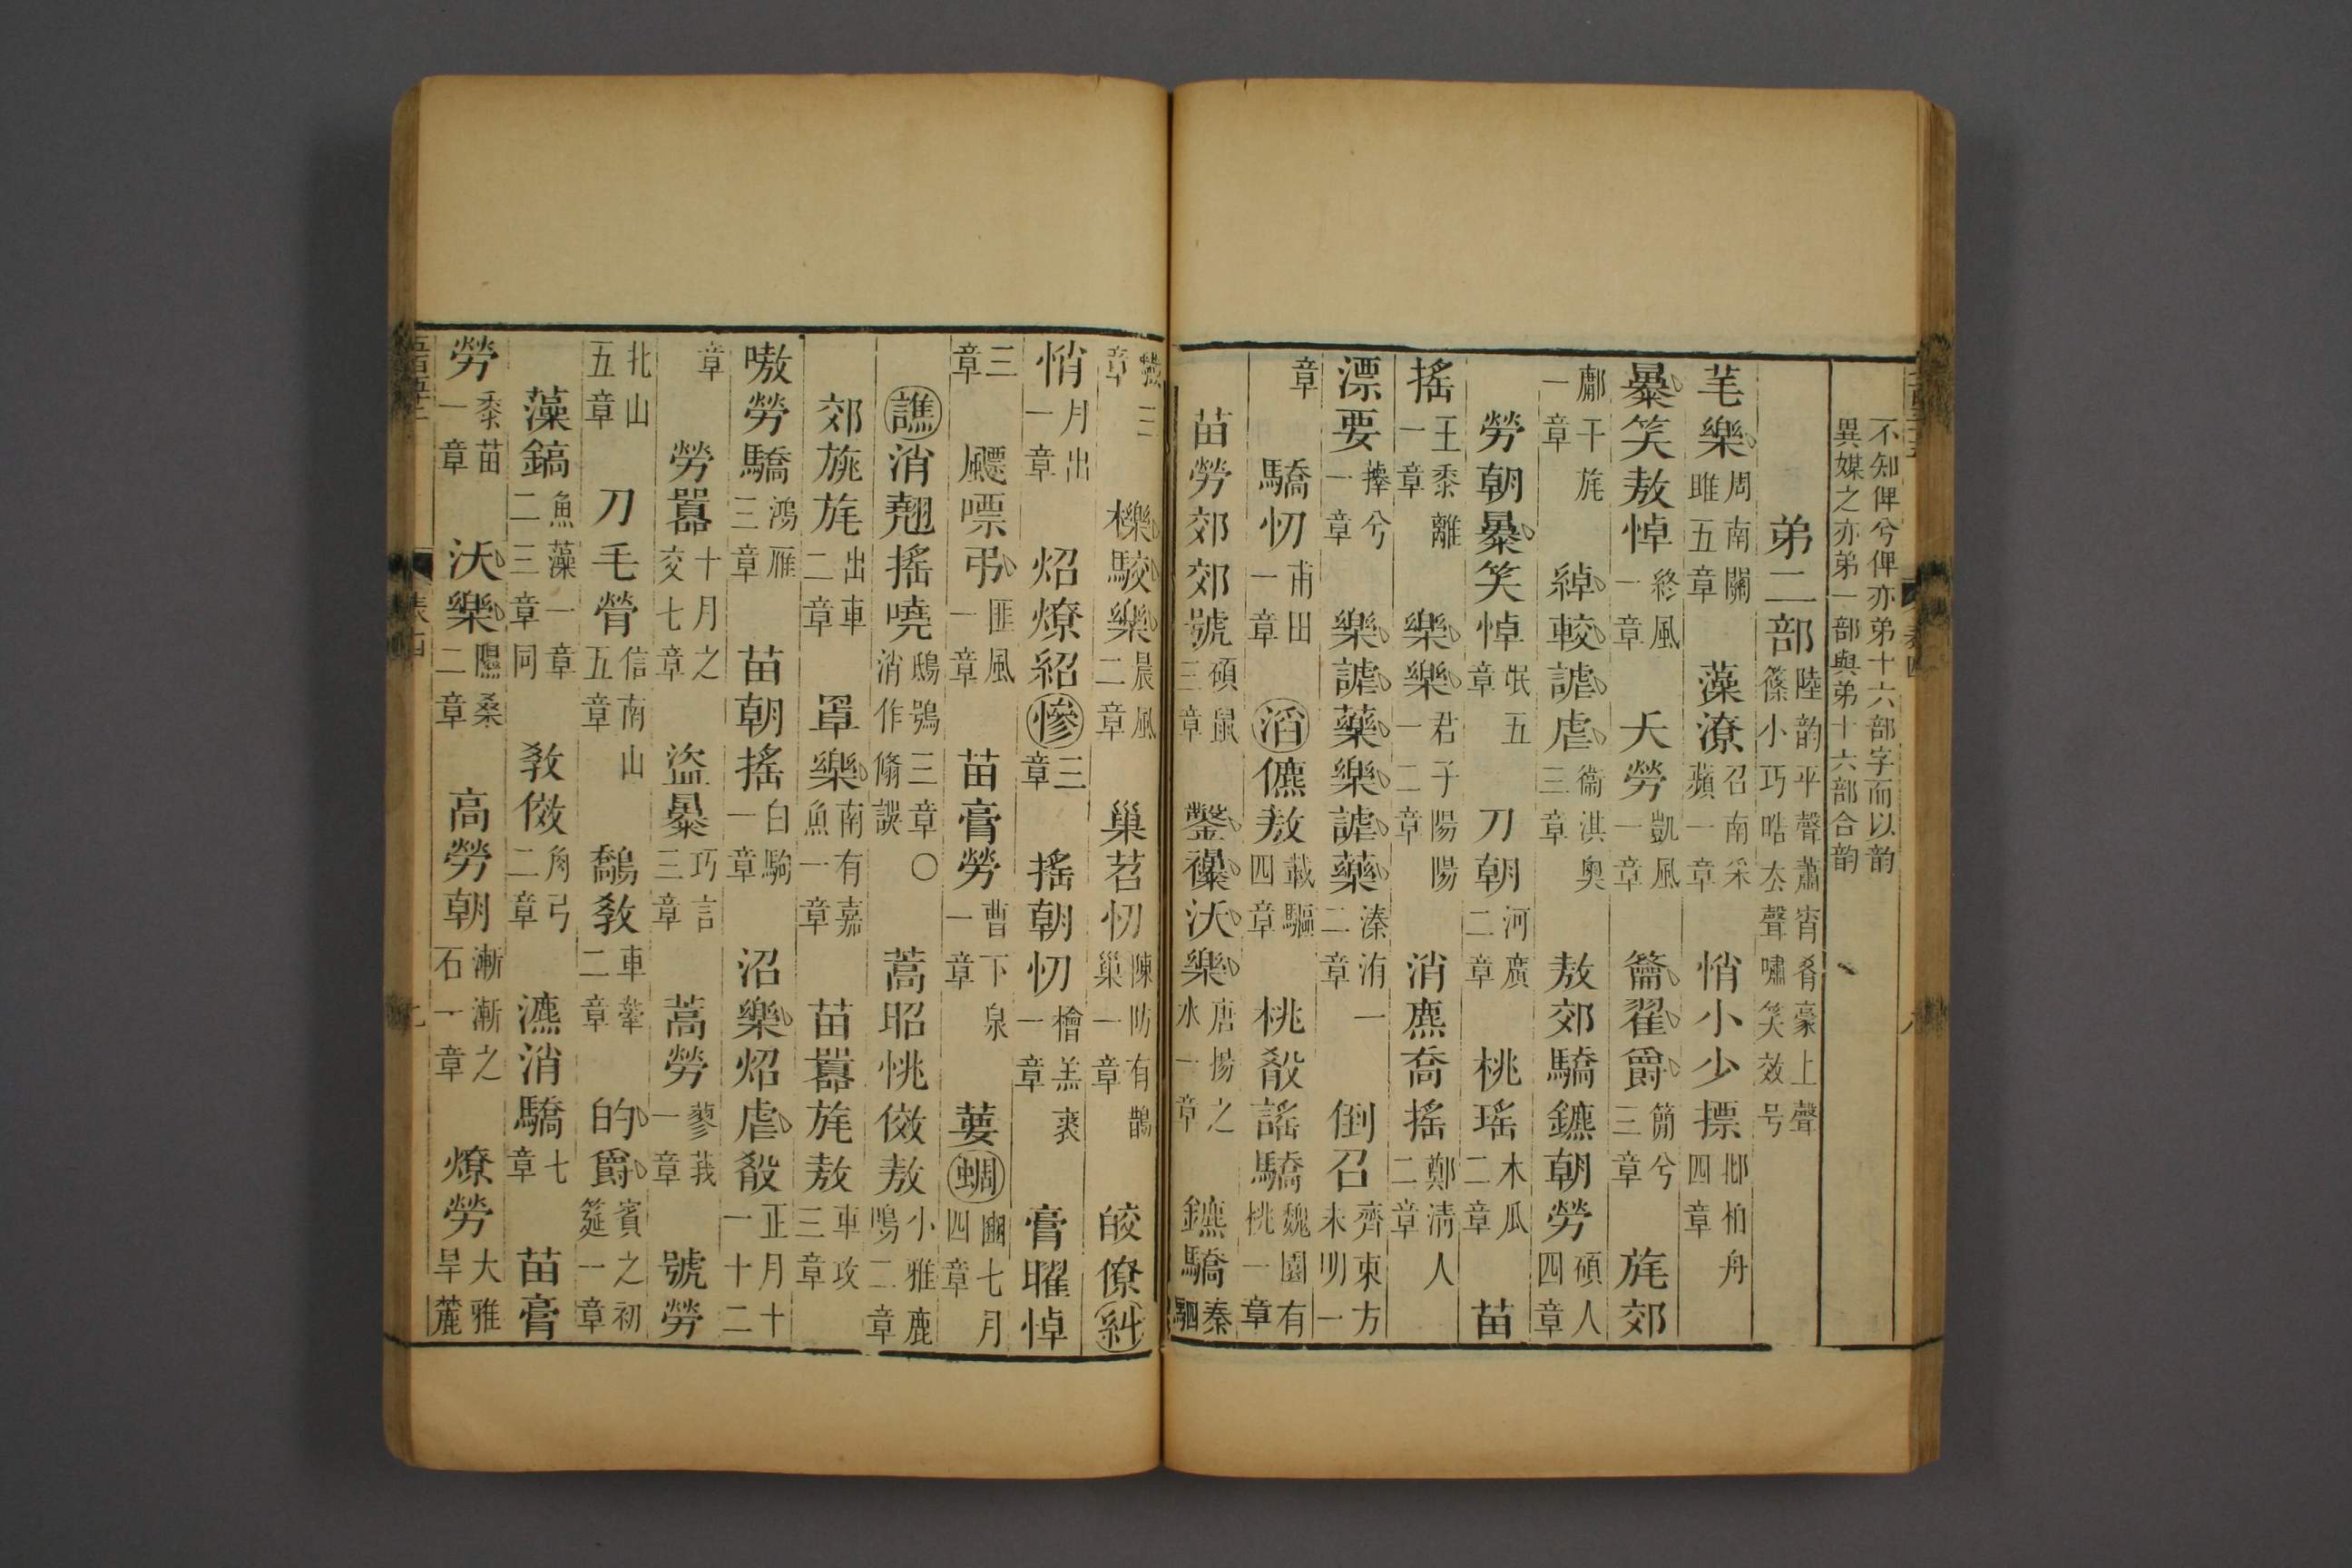 不知俾兮俾亦弟十六部字而以韵
異媒之亦弟一部與弟十六部合韵
弟二部 陸韵平聲蕭宵肴豪上聲篠小巧晧去聲嘯笑效号
芼樂 周南關雎五章 藻潦 召南采蘋一章 悄小少摽 邶柏舟四章
暴笑敖悼 終風一章 夭勞 凱風一章 籥翟爵 簡兮三章 旄郊
鄘干旄一章 綽較謔虐 衞淇奧三章 敖郊驕鑣朝勞 碩人四章
勞朝暴笑悼 氓五章 刀朝 河廣二章 桃瑤 木瓜二章 苗
搖 王黍離一章 樂樂 君子陽陽一二章 消麃喬搖 鄭清人二章
漂要 蘀兮一章 樂謔藥樂謔藥 溱洧一二章 倒召 齊東方未明一
章 驕忉 甫田一章 滔儦敖 載驅四章 桃殽謠驕 魏園有桃一章
苗勞郊郊號 碩鼠三章 鑿襮沃樂 唐揚之水一章 鑣驕 秦駟
驖三章 櫟駮樂 晨風二章 巢苕忉 陳防有鵲巢一章 皎僚糾
悄 月出一章 炤燎紹慘 三章 搖朝忉 檜羔裘一章 膏曜悼
三章 飄嘌弔 匪風一章 苗膏勞 曹下泉一章 葽蜩 豳七月四章
譙消翹搖嘵 鴟鴞三章○消作翛誤 蒿昭恌傚敖 小雅鹿鳴二章
郊旐旄 出車二章 罩樂 南有嘉魚一章 苗囂旄敖 車攻三章
嗷勞驕 鴻雁三章 苗朝搖 白駒一章 沼樂炤虐殽 正月十一十二
章 勞囂 十月之交七章 盜暴 巧言三章 蒿勞 蓼莪一章 號勞
北山五章 刀毛膋 信南山五章 鷮教 車舝二章 的爵 賓之初筵一章
藻鎬 魚藻一章二三章同 教傚 角弓二章 瀌消驕 七章 苗膏
勞 黍苗一章 沃樂 隰桑二章 高勞朝 漸漸之石一章 燎勞 大雅旱麓